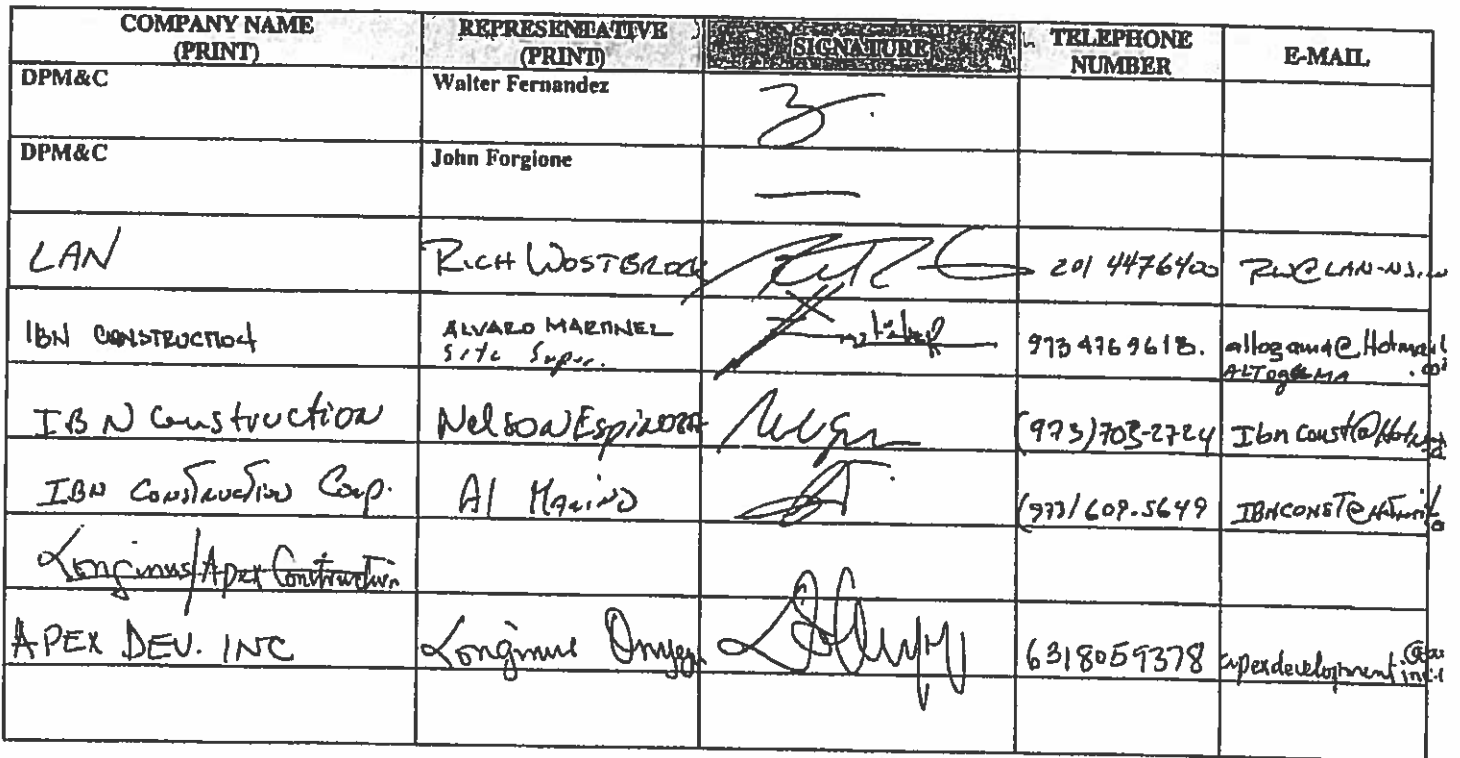 COMPANY NAME (PRINT) REPRESENTATIVE (PRINT) SIGNATURE TELEPHONE NUMBER E-MAIL
DPM&C Walter Fernandez
DPM&C John Forgione
LAN RICH WOSTBROCK 201 4476400 RW@LAN-NJ.
IBN CONSTRUCTION ALVARO MARTINEZ 973 4769613. @Hotmail
Site Super.
IBN Construction Nelson Espinoza (973)703-2724 Ibn Const@
IBN Construction Corp. Al Marino (973) 609.5649 IBNCONST@
Longinus/Apex Construction
APEX DEV. INC Longinus 6318059378 apexdevelopment